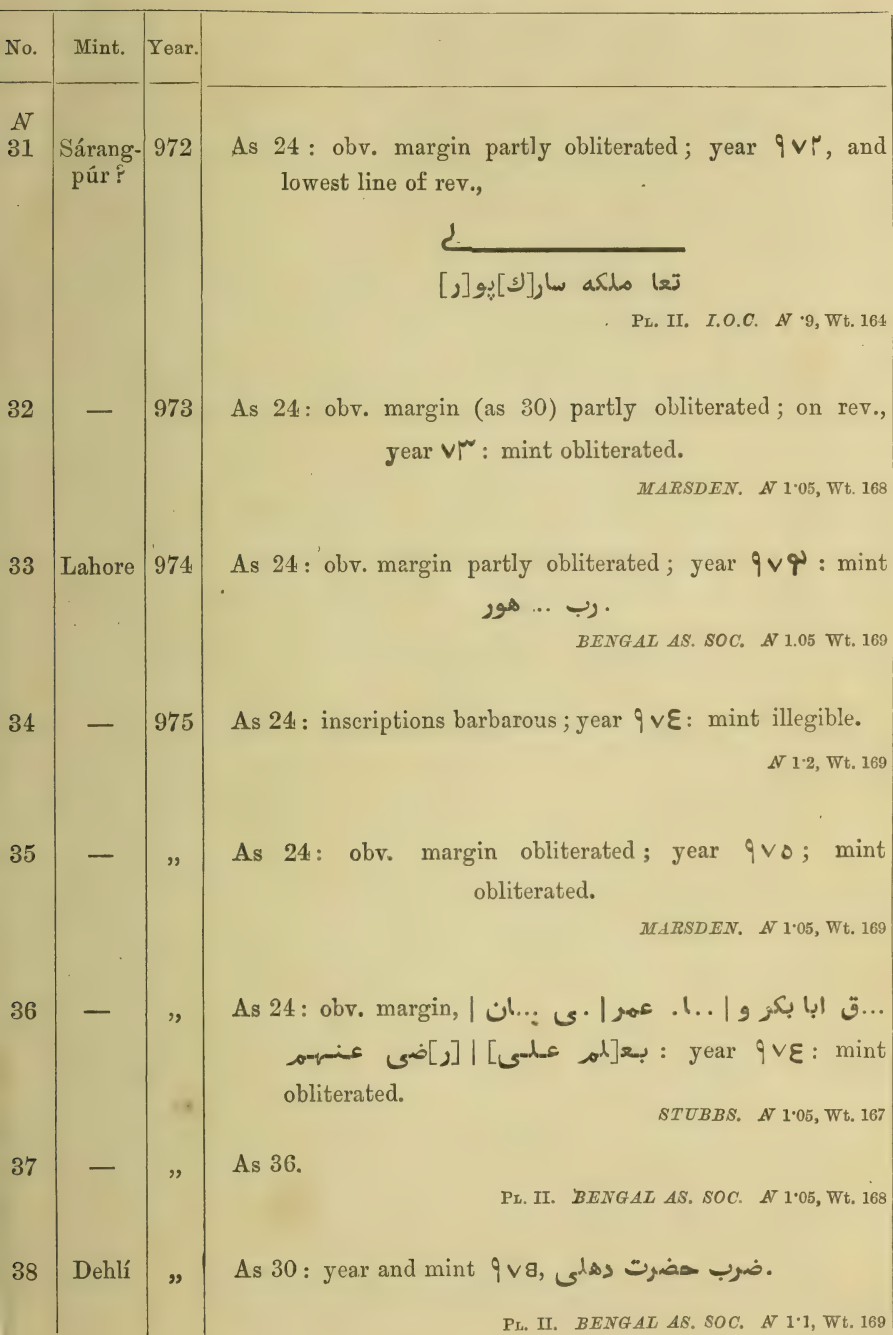 No. Mint. Year.
N
31 Sárang- 972 As 24 : obv. margin partly obliterated; year ٩٧٢, and
púr? lowest line of rev.,
لے
تعا ملكه سار[ك]پو[ر]
PL. II. I.O.C. N ·9, Wt. 164
32 — 973 As 24: obv. margin (as 30) partly obliterated; on rev.,
year ٧٣: mint obliterated.
MARSDEN. N 1·05, Wt. 168
33 Lahore 974 As 24: obv. margin partly obliterated; year ٩٧۴ : mint
رب ... هور.
BENGAL AS. SOC. N 1.05 Wt. 169
34 — 975 As 24: inscriptions barbarous; year ٩٧٤: mint illegible.
N 1·2, Wt. 169
35 — „ As 24: obv. margin obliterated; year ٩٧٥; mint
obliterated.
MARSDEN. N 1·05, Wt. 169
36 — „ As 24: obv. margin, ...ق ابا بكر و | ..ا. عمر | .ى ...ان |
بعـ[لم علـى] | [ر]ضى عنـهم : year ٩٧٤: mint
obliterated.
STUBBS. N 1·05, Wt. 167
37 — „ As 36.
PL. II. BENGAL AS. SOC. N 1·05, Wt. 168
38 Dehlí „ As 30: year and mint ٩٧٥, ضرب حضرت دهلى.
PL. II. BENGAL AS. SOC. N 1·1, Wt. 169